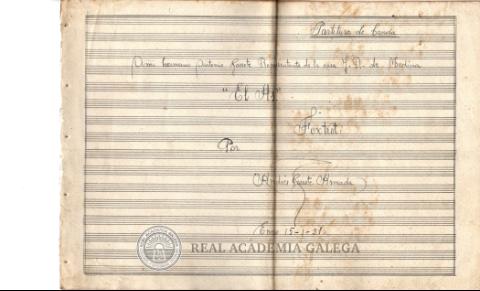 Partitura de Banda
A mi hermano Antonio Gaioto Representante de la casa J. R. de Medina
"El As"
Foxtrot
Por
Andrés Armada
15-1-31
REAL ACADEMIA GALEGA